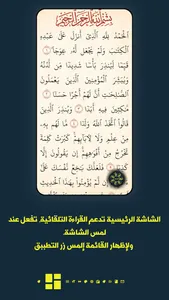 بِسْمِ اللَّهِ الرَّحْمَٰنِ الرَّحِيمِ
الْحَمْدُ لِلَّهِ الَّذِي أَنزَلَ عَلَىٰ عَبْدِهِ
الْكِتَابَ وَلَمْ يَجْعَل لَّهُ عِوَجًا ۜ ١
قَيِّمًا لِّيُنذِرَ بَأْسًا شَدِيدًا مِّن لَّدُنْهُ
وَيُبَشِّرَ الْمُؤْمِنِينَ الَّذِينَ يَعْمَلُونَ
الصَّالِحَاتِ أَنَّ لَهُمْ أَجْرًا حَسَنًا ٢
مَّاكِثِينَ فِيهِ أَبَدًا ٣ وَيُنذِرَ الَّذِينَ
قَالُوا اتَّخَذَ اللَّهُ وَلَدًا ٤ مَّا لَهُم بِهِ
مِنْ عِلْمٍ وَلَا لِآبَائِهِمْ ۚ كَبُرَتْ كَلِمَةً
تَخْرُجُ مِنْ أَفْوَاهِهِمْ ۚ إِن يَقُولُونَ إِلَّا
كَذِبًا ٥ فَلَعَلَّكَ بَاخِعٌ نَّفْسَكَ عَلَىٰ
إِن لَّمْ يُؤْمِنُوا بِهَٰذَا الْحَدِيثِ
الشاشة الرئيسية تدعم القراءة التلقائية. تفعل عند
لمس الشاشة.
ولإظهار القائمة إلمس زر التطبيق